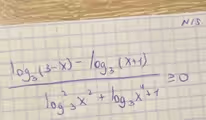 N15
log₃(3-x) - log₃(x+1)
≥0
log²₃x² + log₃x⁴+1